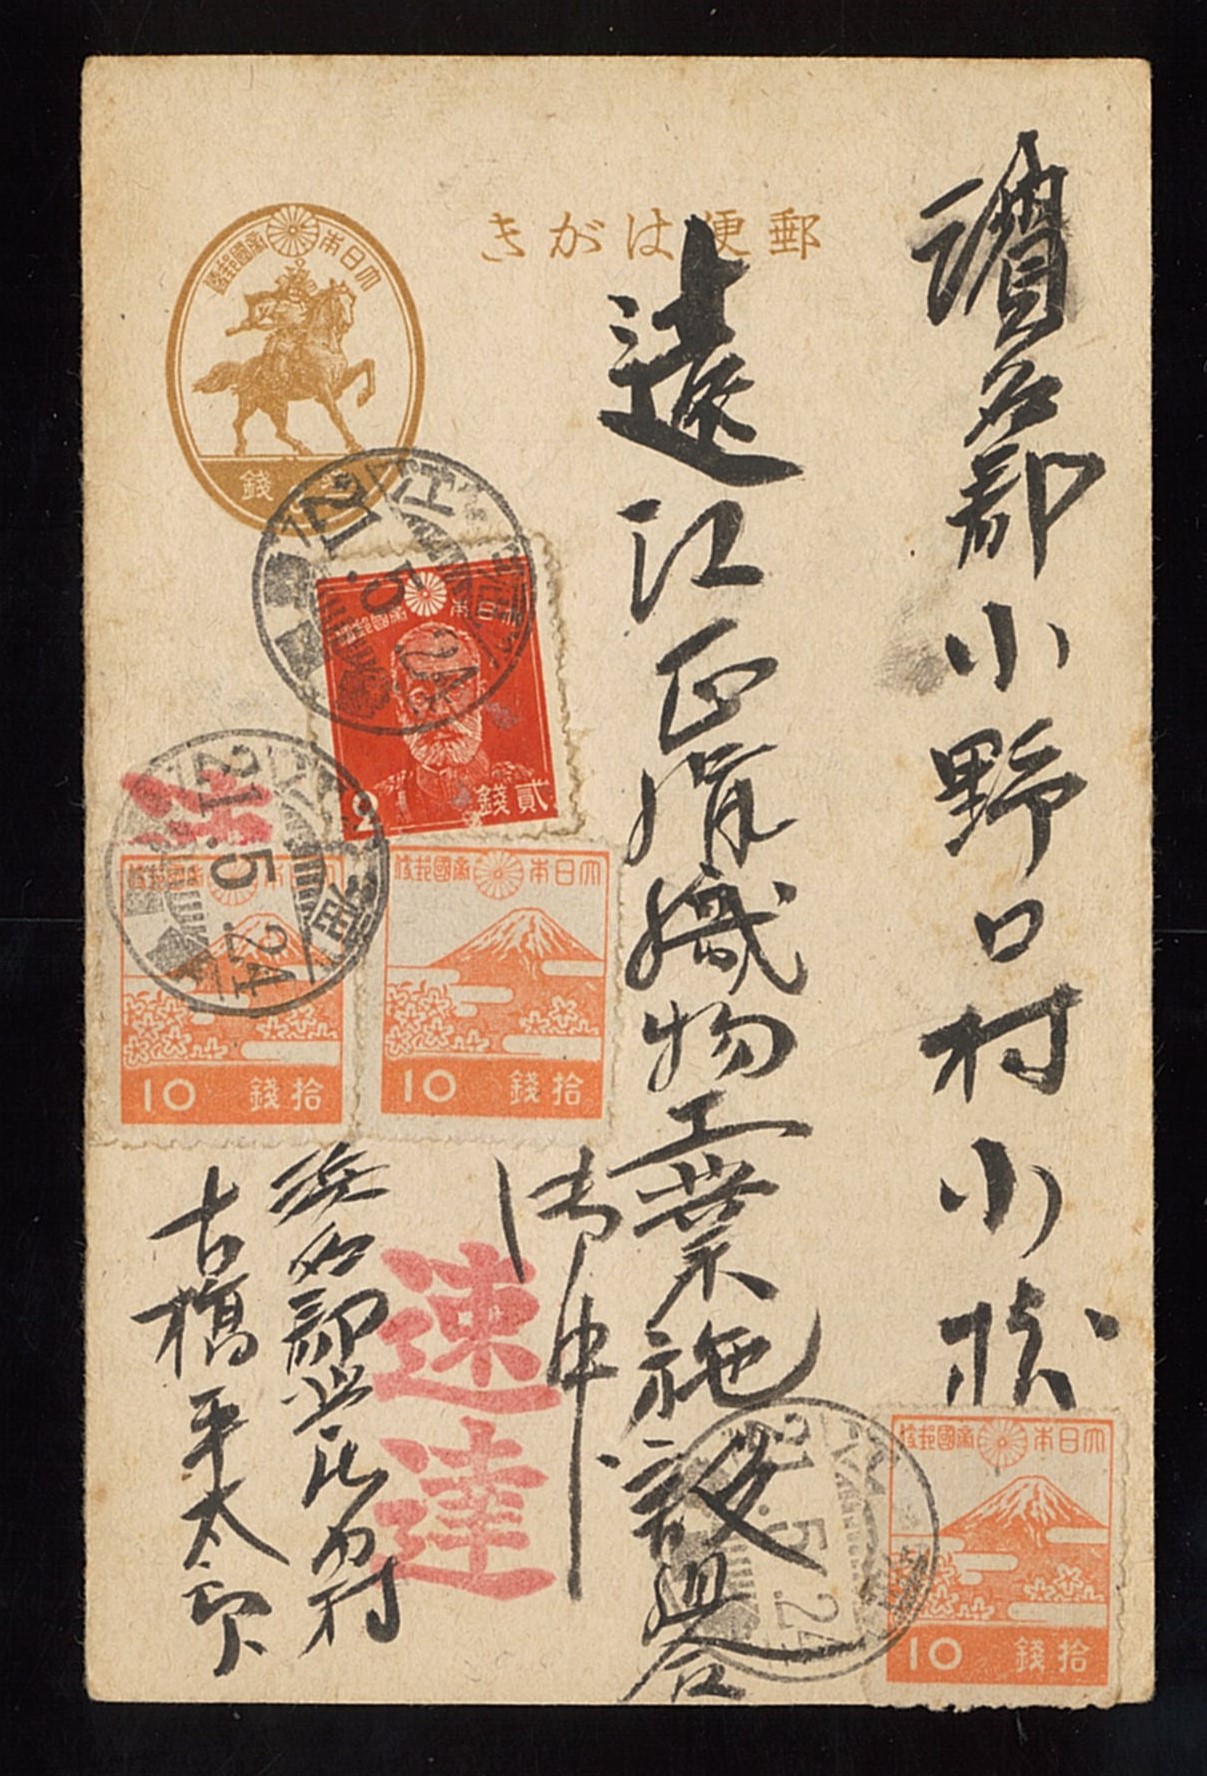 郵便はがき
濱名郡小野口村小松
遠江正絹織物工業施設組合
御中
浜名郡
古橋平太郎
速達
大日本帝國郵便
錢
大日本帝國郵便
貳錢
2
大日本帝國郵便
拾錢
10
大日本帝國郵便
拾錢
10
大日本帝國郵便
拾錢
10
21.5.24
21.5.24
5.24